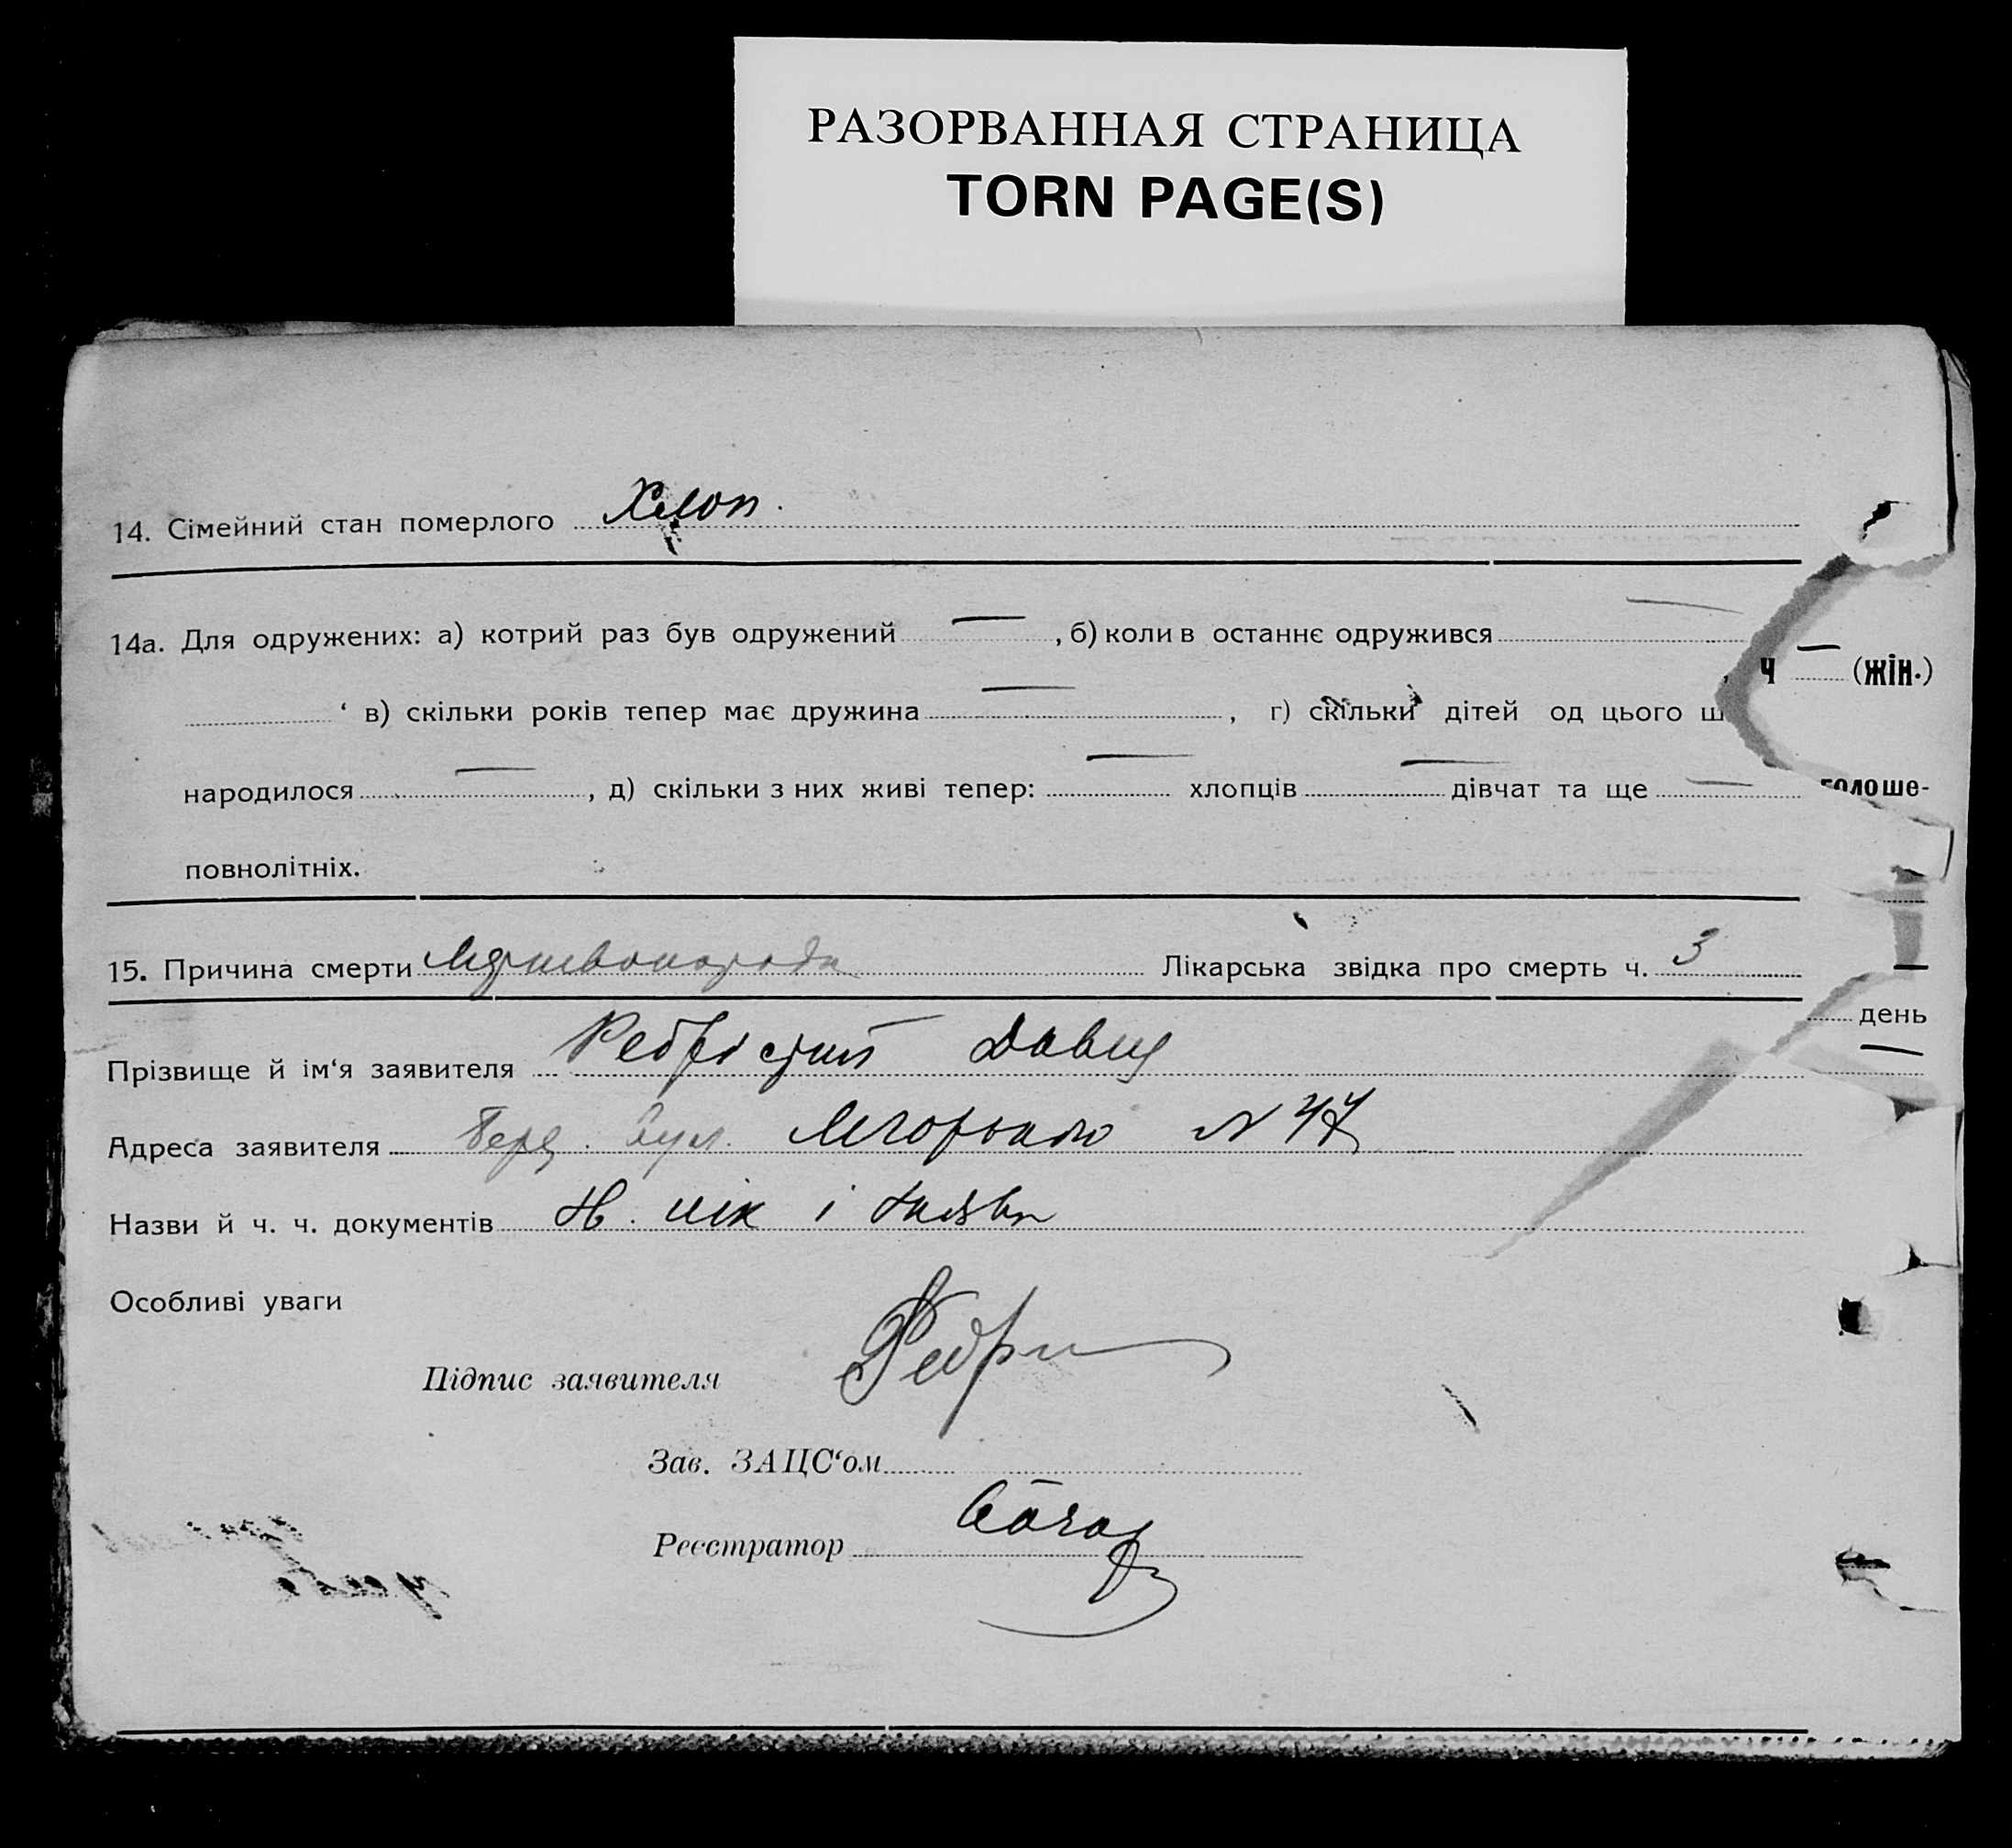 РАЗОРВАННАЯ СТРАНИЦА
TORN PAGE(S)
14. Сімейний стан померлого Хлоп.
14а. Для одружених: а) котрий раз був одружений — , б) коли в останнє одружився —
, Ч — (жін.)
‘ в) скільки років тепер має дружина — , г) скільки дітей од цього ш
народилося — , д) скільки з них живі тепер: — хлопців — дівчат та ще —
голоше-
повнолітніх.
15. Причина смерти Мертвонарод. Лікарська звідка про смерть ч. 3
день
Прізвище й ім‘я заявителя Давид
Адреса заявителя Берд. вул. М Горького N 47
Назви й ч. ч. документів Н. лік і заява
Особливі уваги
Підпис заявителя
Зав. ЗАЦС‘ом
Реєстратор